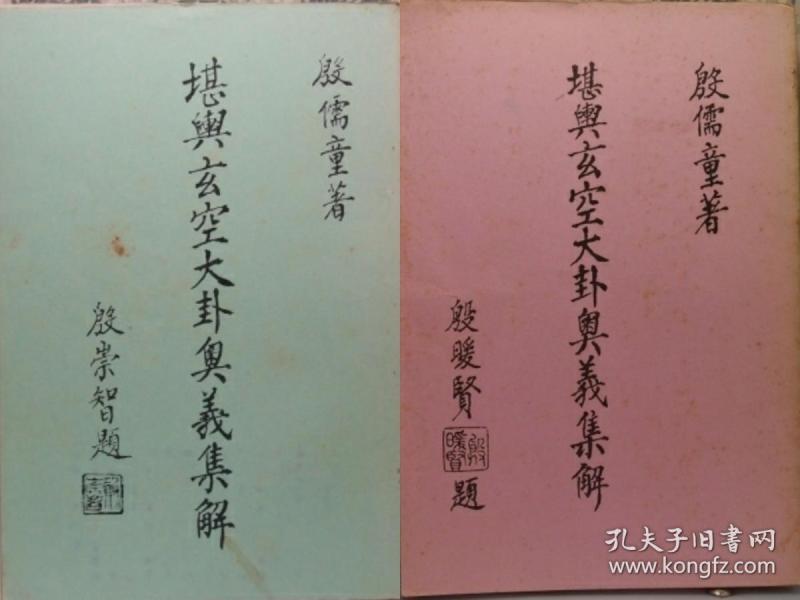 殷儒童著
堪輿玄空大卦奧義集解
殷崇智題
殷儒童著
堪輿玄空大卦奧義集解
殷暖賢
殷暖賢
題
孔夫子旧书网
www.kongfz.com